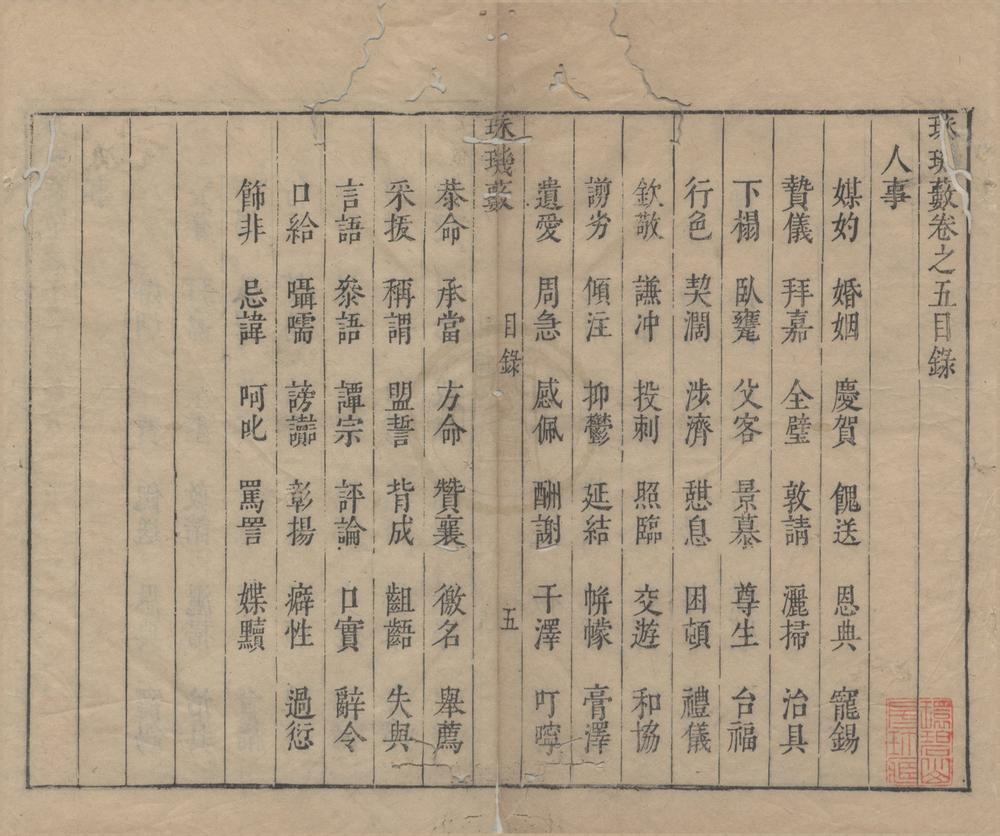 珠璣藪卷之五目錄
人事
媒妁 婚姻 慶賀 餽送 恩典 寵錫
贄儀 拜嘉 全璧 敦請 灑掃 治具
下榻 臥甕 父客 景慕 尊生 台福
行色 契濶 涉濟 憇息 困頓 禮儀
欽敬 謙冲 投刺 照臨 交遊 和協
謭劣 傾注 抑鬱 延結 帡幪 膏澤
遺愛 周急 感佩 酬謝 干澤 叮嚀
珠璣藪 目錄 五
恭命 承當 方命 贊襄 徼名 舉薦
采援 稱謂 盟誓 背成 齟齬 失與
言語 叅語 譚宗 評論 口實 辭令
口給 囁嚅 謗讟 彰揚 癖性 過愆
飾非 忌諱 呵叱 罵詈 媟黷